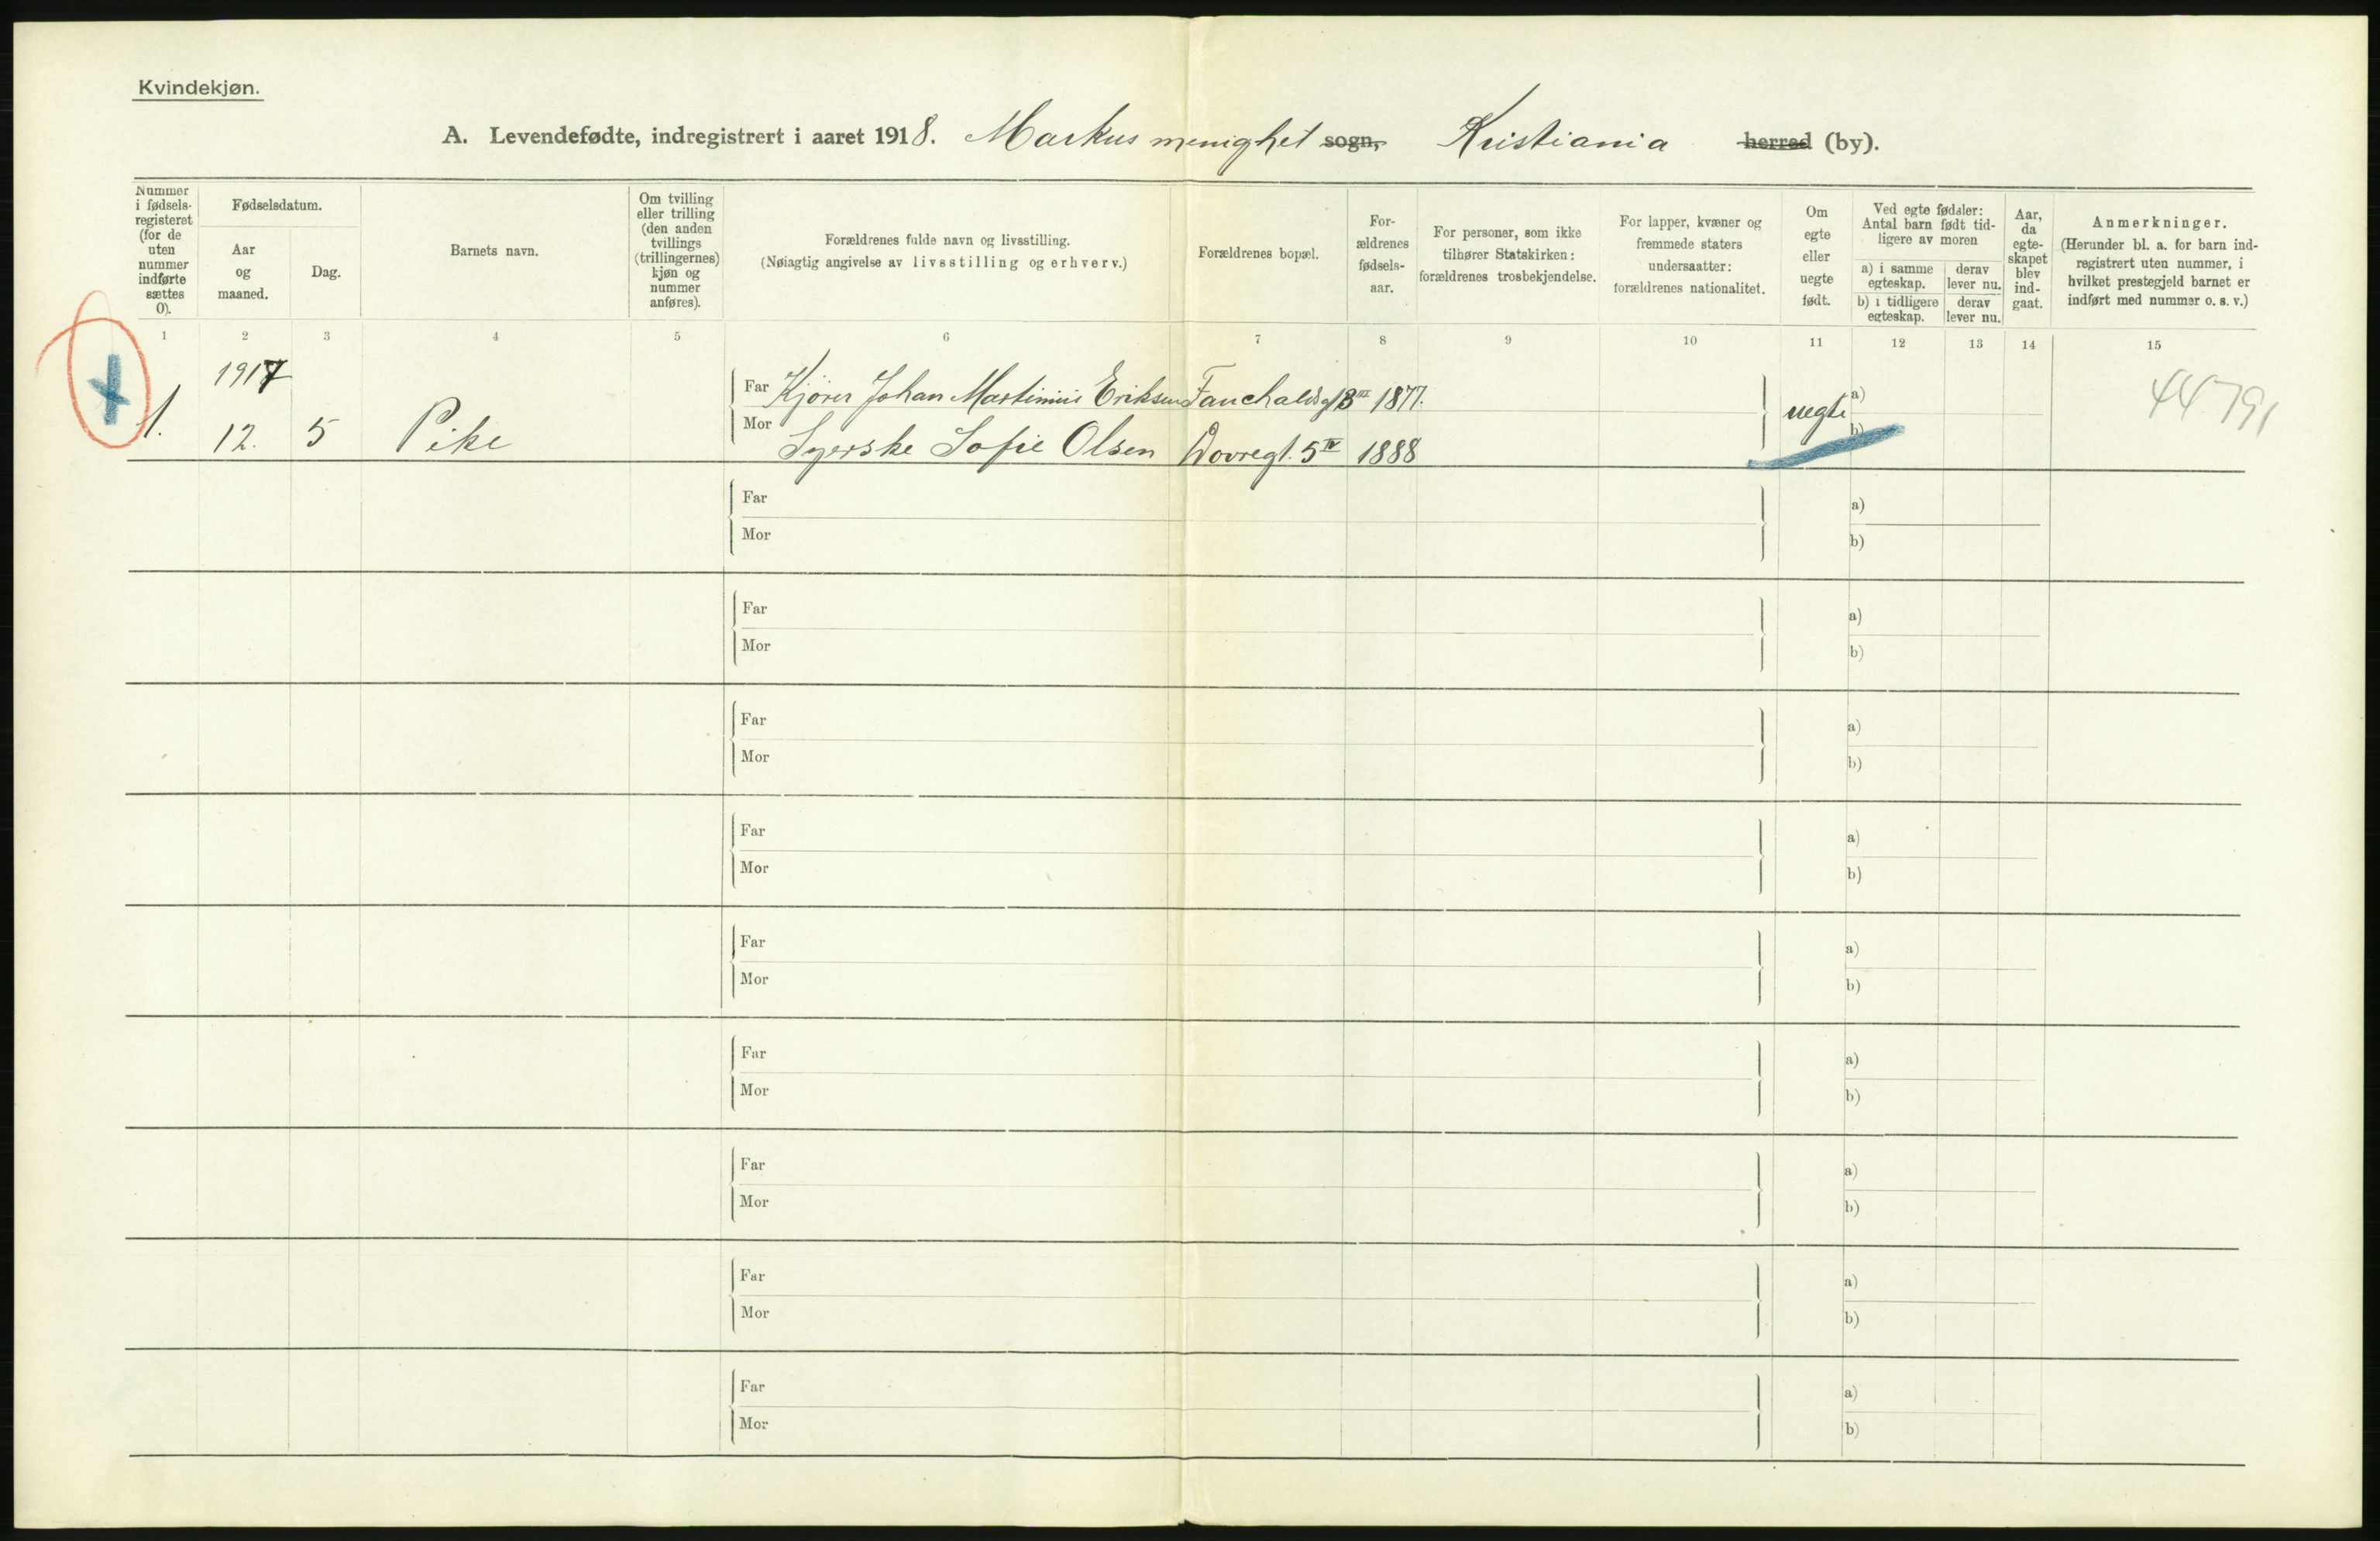 Kvindekjøn.
A. Levendefødte, indregistrert i aaret 1918. Markus menighet sogn, Kristiania herred (by).
Nummer i fødsels-registeret (for de uten nummer indførte sættes 0).
Fødselsdatum.
Aar og maaned.
Dag.
Barnets navn.
Om tvilling eller trilling (den anden tvillings (trillingernes) kjøn og nummer anføres).
Forældrenes fulde navn og livsstilling.
(Nøiagtig angivelse av livsstilling og erhverv.)
Forældrenes bopæl.
For-ældrenes fødsels-aar.
For personer, som ikke tilhører Statskirken: forældrenes trosbekjendelse.
For lapper, kvæner og fremmede staters undersaatter: forældrenes nationalitet.
Om egte eller uegte født.
Ved egte fødsler: Antal barn født tid-ligere av moren
a) i samme egteskap.
derav lever nu.
b) i tidligere egteskap.
derav lever nu.
Aar, da egte-skapet blev ind-gaat.
Anmerkninger.
(Herunder bl. a. for barn ind-registrert uten nummer, i hvilket prestegjeld barnet er indført med nummer o. s. v.)
1 2 3 4 5 6 7 8 9 10 11 12 13 14 15
1917
Far Kjører Johan Martinius Eriksen 13 III 1877. a)
1. 12. 5 Pike Mor Syerske Sofie Olsen Dovregt. 5 IV 1888 uegte b) 44791
Far a)
Mor b)
Far a)
Mor b)
Far a)
Mor b)
Far a)
Mor b)
Far a)
Mor b)
Far a)
Mor b)
Far a)
Mor b)
Far a)
Mor b)
Far a)
Mor b)